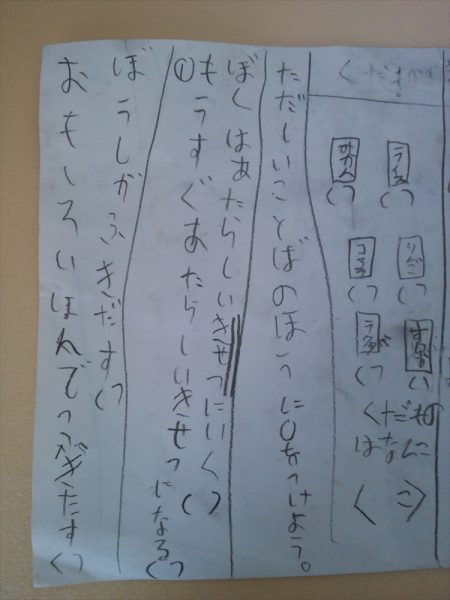 くだもの
ラーメン
( )
みかん
( )
りんご
( )
ココア
( )
すいか
( )
( )
くだもの
はなんこ
〈 こ〉
ただしいことばのほうに○をつけよう。
ぼくはあたらしいきせつにいく( )
①もうすぐあたらしいきせつになる( )
ぼうしがふきだす( )
おもしろいほんでつふきだす( )